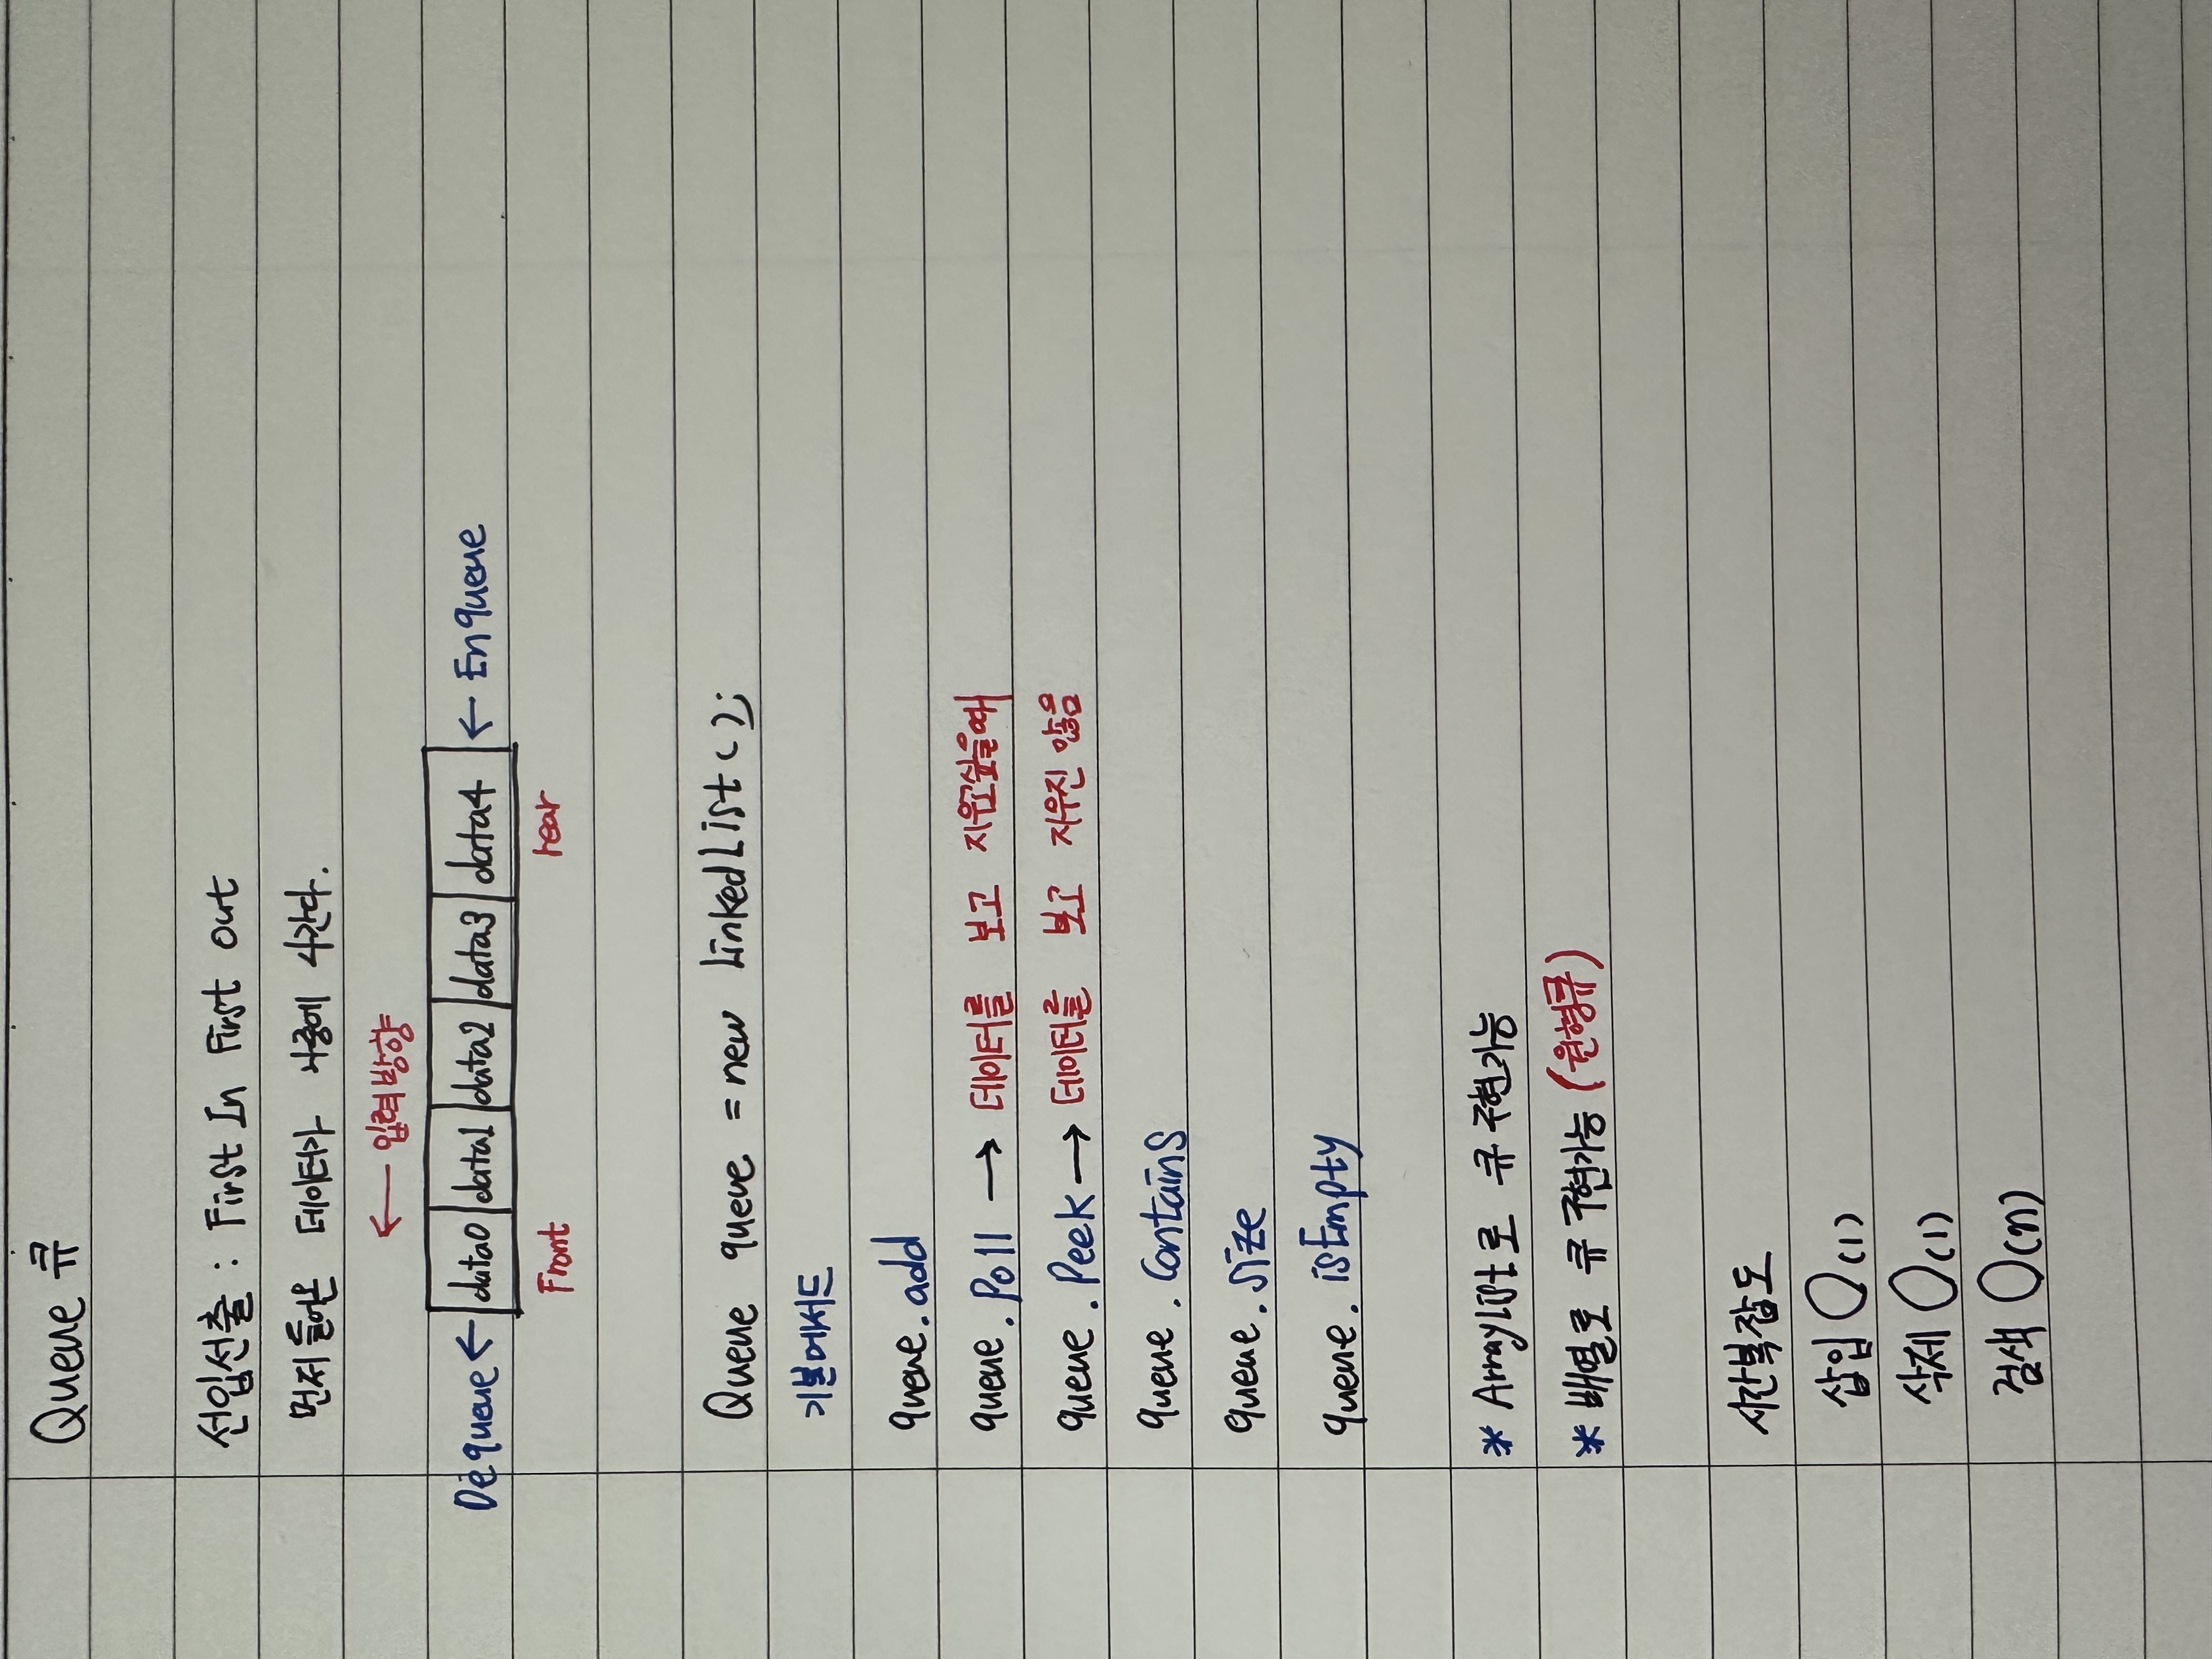 Queue 큐
선입선출 : First In First Out
먼저 들어온 데이터가 나중에 나간다.
← 입력방향
Dequeue ← data0 data1 data2 data3 data4 ← Enqueue
Front rear
Queue queue = new LinkedList();
기본메서드
queue.add
queue.Poll → 데이터를 보고 지우고싶을때
queue.Peek → 데이터를 보고 지우진 않음
queue.Contains
queue.size
queue.isEmpty
* ArrayList로 큐 구현가능
* 배열로 큐 구현가능 (원형큐)
시간복잡도
삽입 O(1)
삭제 O(1)
검색 O(n)